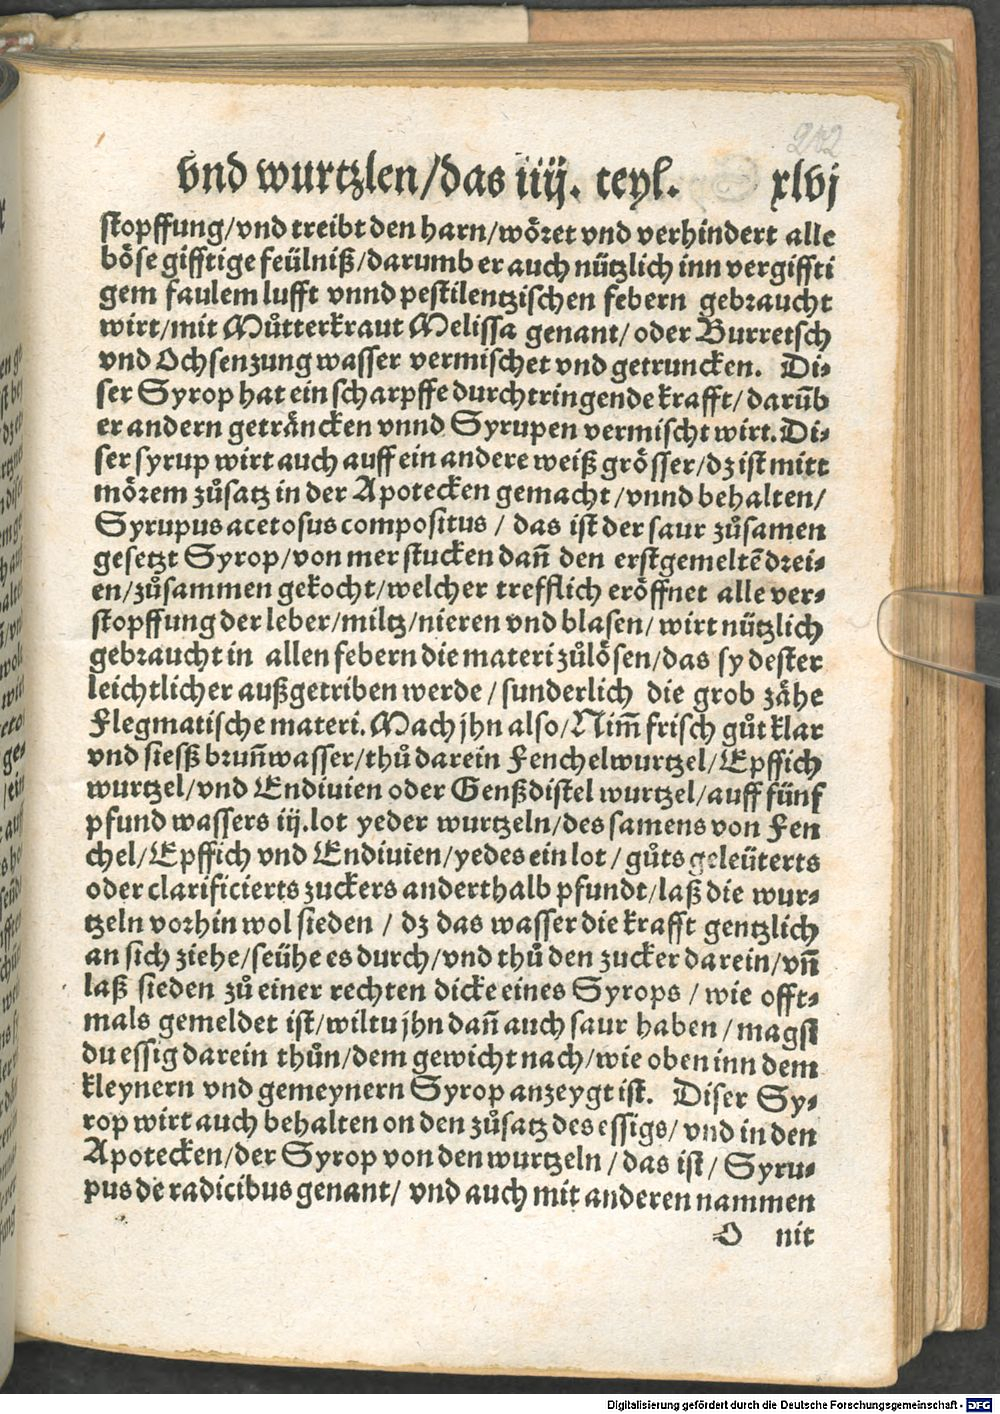 202
vnd wurtzlen/das iiij. teyl. xlvj
stopffung/vnd treibt den harn/wöret vnd verhindert alle
böse gifftige feülniß/darumb er auch nützlich inn vergiffti
gem faulem lufft vnnd pestilentzischen febern gebraucht
wirt/mit Můtterkraut Melissa genant/oder Burretsch
vnd Ochsenzung wasser vermischet vnd getruncken. Di⸗
ser Syrop hat ein scharpffe durchtringende krafft/darūb
er andern geträncken vnnd Syrupen vermischt wirt. Di⸗
ser syrup wirt auch auff ein andere weiß grösser/dz ist mitt
mörem zůsatz in der Apotecken gemacht/vnnd behalten/
Syrupus acetosus compositus / das ist der saur zůsamen
gesetzt Syrop/von mer stucken dañ den erstgemeltē drei⸗
en/zůsammen gekocht/welcher trefflich eröffnet alle ver⸗
stopffung der leber/miltz/nieren vnd blasen/wirt nützlich
gebraucht in allen febern die materi zůlösen/das sy dester
leichtlicher außgetriben werde/sunderlich die grob zähe
Flegmatische materi. Mach jhn also/Nim̄ frisch gůt klar
vnd siesß bruñwasser/thů darein Fenchelwurtzel/Epffich
wurtzel/vnd Endiuien oder Genßdistel wurtzel/auff fünf
pfund wassers iij.lot yeder wurtzeln/des samens von Fen
chel/Epffich vnd Endiuien/yedes ein lot/gůts geleüterts
oder clarificierts zuckers anderthalb pfundt/laß die wur⸗
tzeln vorhin wol sieden / dz das wasser die krafft gentzlich
an sich ziehe/seühe es durch/vnd thů den zucker darein/vñ
laß sieden zů einer rechten dicke eines Syrops / wie offt⸗
mals gemeldet ist/wiltu jhn dañ auch saur haben/magst
du essig darein thůn/dem gewicht nach/wie oben inn dem
kleynern vnd gemeynern Syrop anzeygt ist. Diser Sy⸗
rop wirt auch behalten on den zůsatz des essigs/vnd in den
Apotecken/der Syrop von den wurtzeln/das ist/Syru⸗
pus de radicibus genant/vnd auch mit anderen nammen
O nit
Digitalisierung gefördert durch die Deutsche Forschungsgemeinschaft - DFG